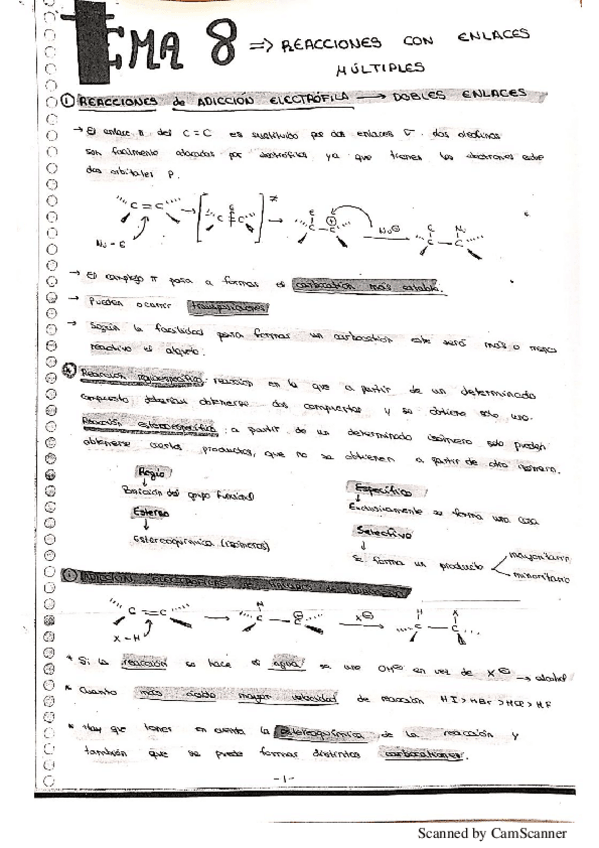 TEMA 8 => REACCIONES CON ENLACES
MÚLTIPLES
① REACCIONES de ADICCIÓN ELECTRÓFILA → DOBLES ENLACES
→ El enlace π del C=C es sustituido por dos enlaces σ. dos
son facilmente atacadas por electrófilos, ya que tienen los electrones entre
dos orbitales P.
C=C
Nu-E
≠
Nu⊖
→ El complejo π pasa a formar el carbocatión más estable.
→ Pueden ocurrir transposiciones
→ Según la facilidad para formar un carbocatión este será más o menos
reactivo el alqueno.
Reacción regioespecífica: reacción en la que a partir de un determinado
compuesto deberían obtenerse dos compuestos y se obtiene solo uno.
Reacción estereoespecífica: a partir de un determinado isómero solo pueden
obtenerse ciertos productos, que no se obtienen a partir de otro isómero.
Regio
Posición del grupo funcional
Estereo
Estereoquímica (isómeros)
Específico
Exclusivamente se forma una cosa
Selectivo
Se forma un producto
mayoritario
minoritario
① ADICCIÓN
C=C
X-H
X⊖
* Si la reacción se hace el agua se une OH⊖ en vez de X⊖ → alcohol
* Cuanto más ácido mayor velocidad de reacción HI > HBr > HCl > HF
* Hay que tener en cuenta la estereoquímica de la reacción y
también que se puede formar distintos carbocationes.
-1-
Scanned by CamScanner